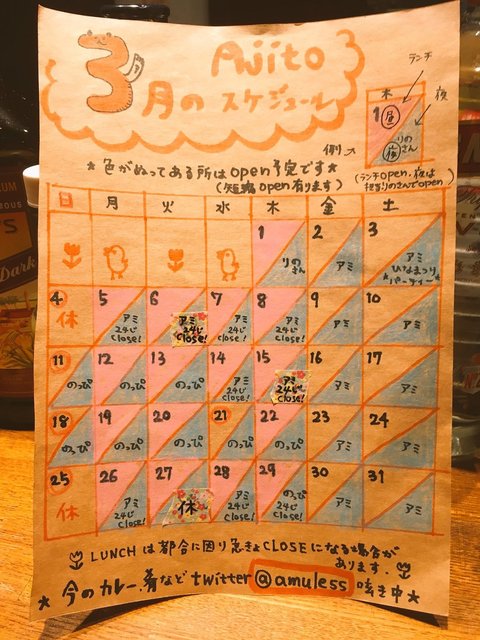 3月の Ajito スケジュール
ランチ
木
夜
1 昼
りのさん
夜
例
*色がぬってある所はopen予定です*
(短縮open有ります)
(ランチopen、夜は
担当りのさんでopen)
日 月 火 水 木 金 土
1 りのさん
2 アミ
3 アミ ひなまつり *パーティー*
4 休
5 アミ 24じ close!
6 アミ 24じ close!
7 アミ 24じ close!
8 アミ 24じ close!
9 アミ
10 アミ
11 のっぴ
12 のっぴ
13 のっぴ
14 アミ 24じ close!
15 アミ 24じ close!
16 アミ
17 アミ
18 のっぴ
19 のっぴ
20 のっぴ
21 のっぴ
22 のっぴ
23 アミ
24 アミ
25 休
26 アミ 24じ close!
27 休
28 アミ 24じ close!
29 のっぴ 24じ close!
30 アミ
31 アミ
LUNCH は都合に因り急きょCLOSEになる場合が
あります.
*今のカレー、肴など twitter @amuless 呟き中*
Dark